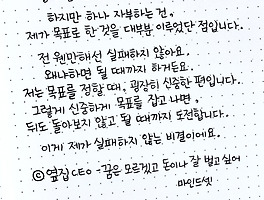 하지만 하나 자부하는 건,
제가 목표로 한 것을 대부분 이루었단 점입니다.
전 웬만해선 실패하지 않아요.
왜냐하면 될 때까지 하거든요.
저는 목표를 정할 때, 굉장히 신중한 편입니다.
그렇게 신중하게 목표를 잡고 나면,
뒤도 돌아보지 않고 될 때까지 도전합니다.
이게 제가 실패하지 않는 비결이에요.
ⓒ 옆집 CEO - 꿈은 모르겠고 돈이나 잘 벌고 싶어
마인드셋